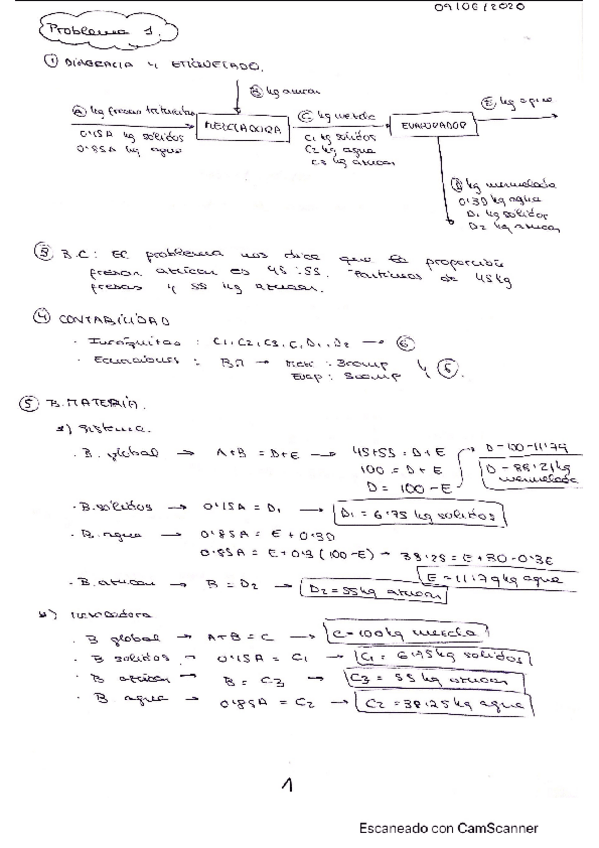 09/06/2020
Problema 1.
① DIAGRAMA y ETIQUETADO.
Ⓑ kg azucar
Ⓔ kg agua
Ⓐ kg fresas trituradas
0'15A kg solidos
0'85A kg agua
MEZCLADORA
Ⓒ kg mezcla
C1 kg solidos
C2 kg agua
C3 kg azucar
EVAPORADOR
Ⓓ kg mermelada
0'3D kg agua
D1 kg solidos
D2 kg azucar
③ B.C: El problema nos dice que la proporción
fresas azucar es 45:55. Partimos de 45kg
fresas y 55 kg azucar.
④ CONTABILIDAD
· Incógnitas : C1, C2, C3, C, D1, D2 → ⑥
· Ecuaciones : BM → Mezc : 3comp
Evap : 3comp } ⑥.
⑤ B. MATERIA.
a) Sistema.
· B. global → A+B = D+E → 45+55 = D+E
100 = D+E
D = 100 - E
D = 100 - 11'79
D = 88'21 kg mermelada
· B. sólidos → 0'15A = D1 → D1 = 6'75 kg solidos
· B. agua → 0'85A = E + 0'3D
0'85A = E + 0'3 (100-E) → 38'25 = E + 30 - 0'3E
E = 11'79 kg agua
· B. azucar → B = D2 → D2 = 55 kg azucar
b) Mezcladora
· B global → A+B = C → C = 100 kg mezcla
· B solidos → 0'15A = C1 → C1 = 6'75 kg solidos
· B azucar → B = C3 → C3 = 55 kg azucar
· B agua → 0'85A = C2 → C2 = 38'25 kg agua
1
Escaneado con CamScanner